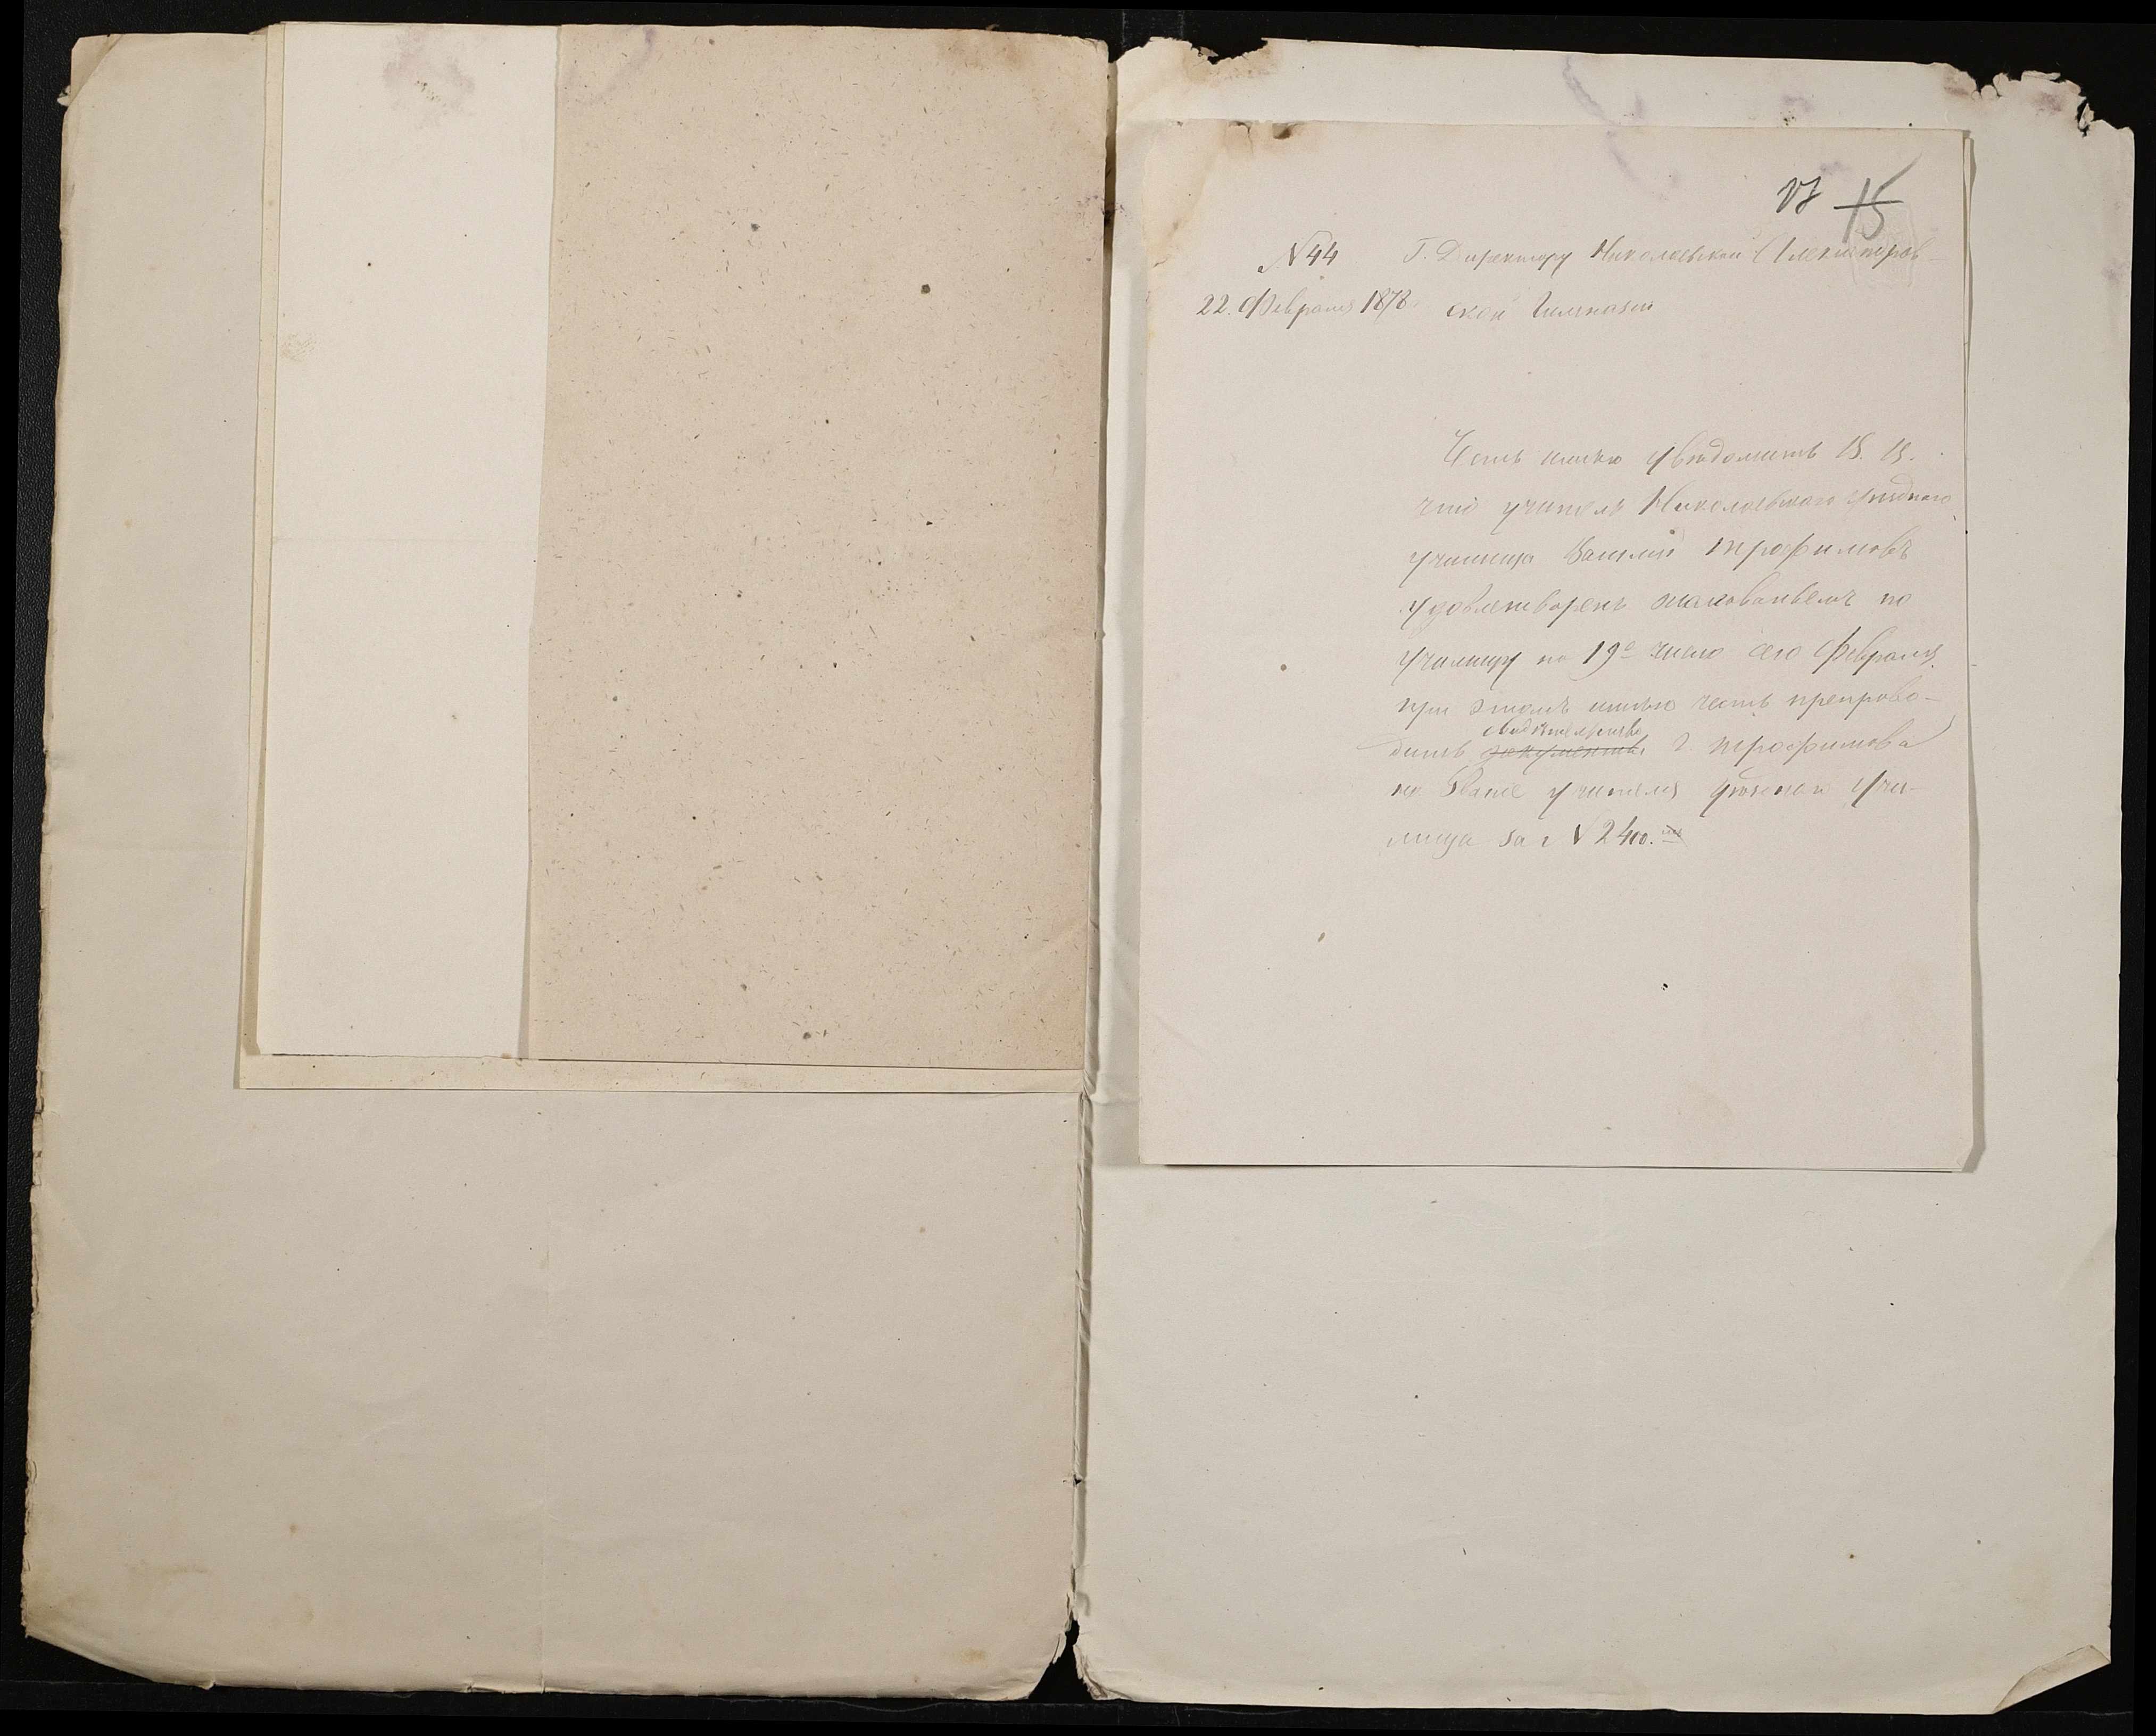 17 15
№ 44 Г. Директору Николаевской Александров-
22 Февраля 1878 ской Гимназіи
Честь имѣю увѣдомить В. В.
что учитель Николаевскаго уѣзднаго
училища Василій Трофимовъ
удовлетворенъ жалованьемъ по
училищу по 19е число сего Февраля,
при этомъ имѣю честь препрово-
свидѣтельство
дить документы г. Трофимова
на званіе учителя уѣзднаго учи-
лища за № 2400.